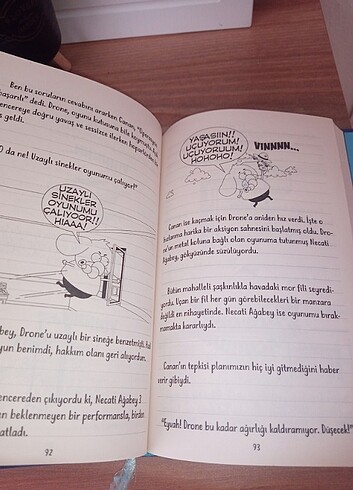 Ben bu soruların cevabını ararken Canan, "Operasyon
başarılı" dedi. Drone, oyunu kutusuna bile koymadan
pencereye doğru yavaş ve sessizce ilerken
geldi.
O da ne! Uzaylı sinekler oyunumu çalıyor!"
UZAYLI
SİNEKLER
OYUNUMU
ÇALIYOOR!!
HIAAA!
bey, Drone'u uzaylı bir sineğe benzetmişti.
yun benimdi, hakkım olanı geri alıyordum.
encereden çıkıyordu ki, Necati Ağabey
en beklenmeyen bir performansla, birden
atladı.
92
YAŞASIIN!!
UÇUYORUM!
UÇUYORUUM!
HOHOHO!
VINNNN...
Canan ise kaçmak için Drone'a aniden hız verdi. İşte o
anda harika bir aksiyon sahnesini başlatmış oldu. Dro-
ne'un metal koluna bağlı olan oyunuma tutunmuş Necati
Ağabey, gökyüzünde süzülüyordu.
Bütün mahalleli şaşkınlıkla havadaki mor fili seyredi-
yordu. Uçan bir fil her gün görebilecekleri bir manzara
değildi en nihayetinde. Necati Ağabey ise oyunumu bırak-
mamakta kararlıydı.
Canan'ın tepkisi planımızın hiç iyi gitmediğini haber
verir gibiydi.
"Eyvah! Drone bu kadar ağırlığı kaldıramıyor. Düşecek!"
93